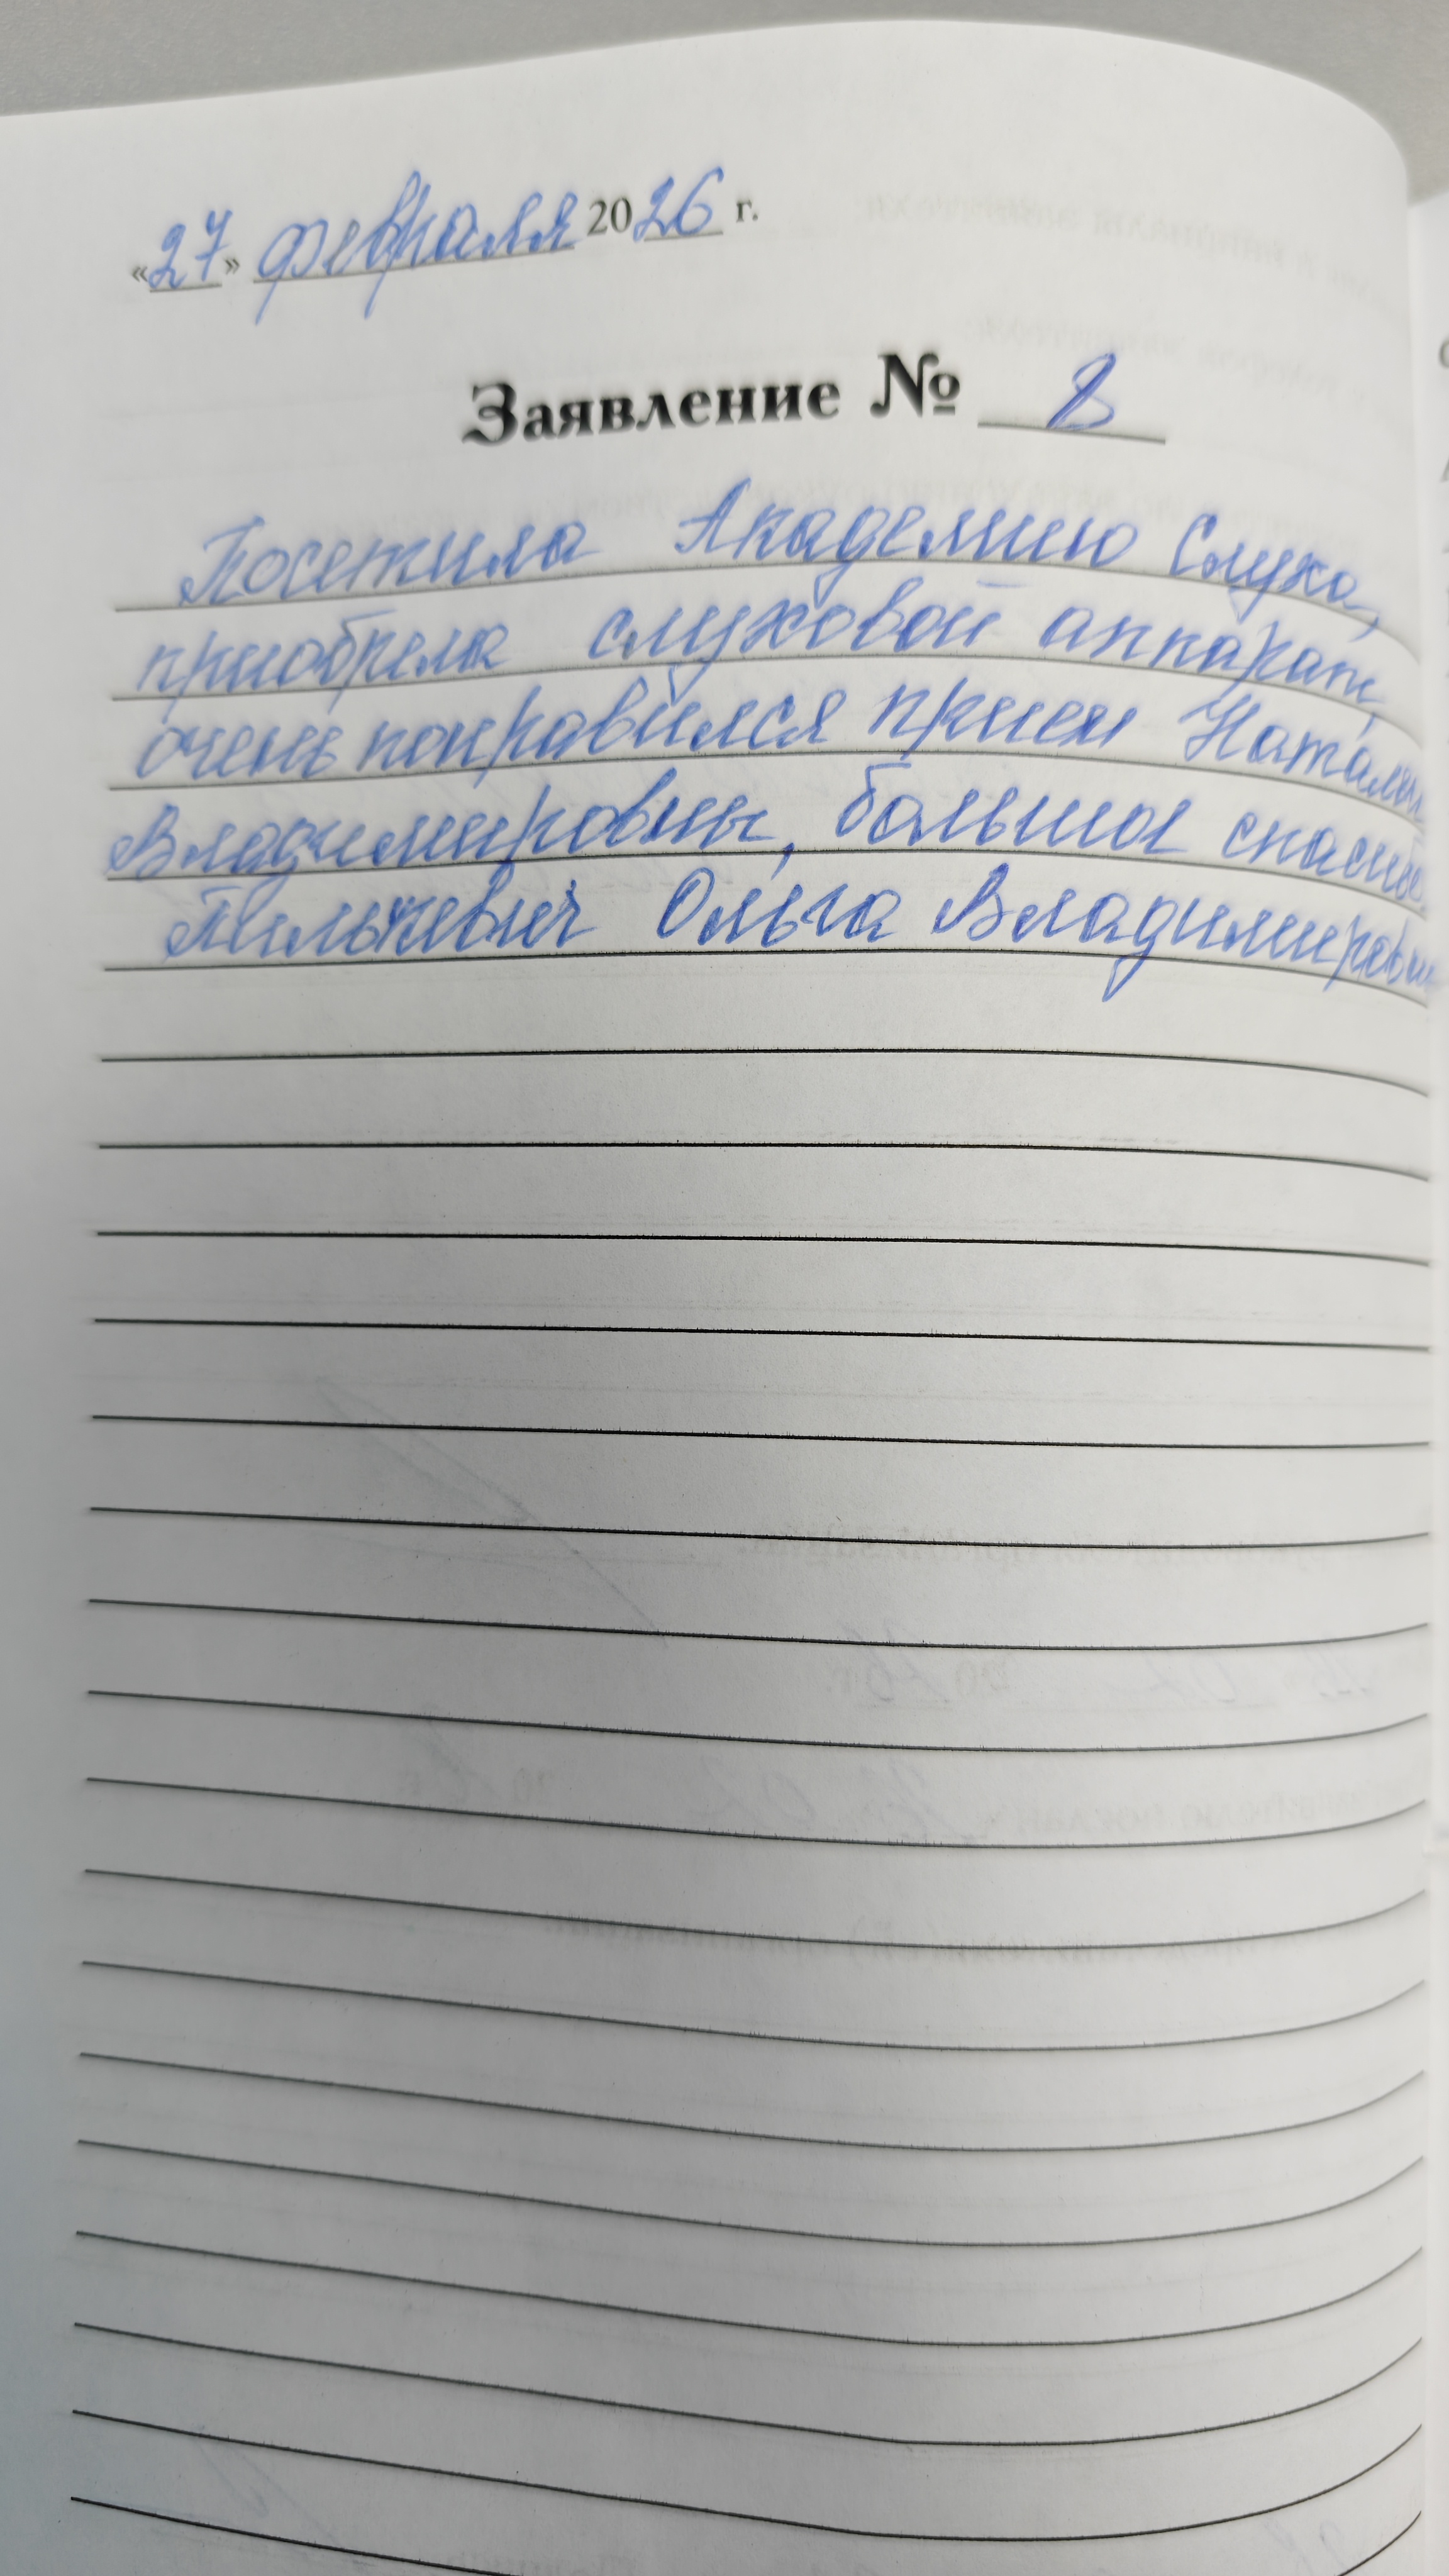 «27» февраля 2026 г.
Заявление № 8
Посетила Академию Слуха,
приобрела слуховой аппарат,
очень понравился прием Натальи
Владимировны, большое спасибо
Ольга Владимировн